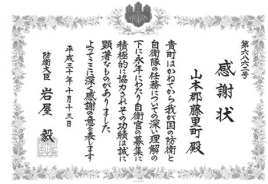 第六八六二号
感謝状
山本郡藤里町殿
貴町はかねてから我が国の防衛と
自衛隊の任務についての深い理解の
下に永年にわたり自衛官の募集に
積極的に協力されその功績は誠に
顕著なものがありました
よってここに深く感謝の意を表します
平成三十年十月十三日
防衛大臣 岩屋毅